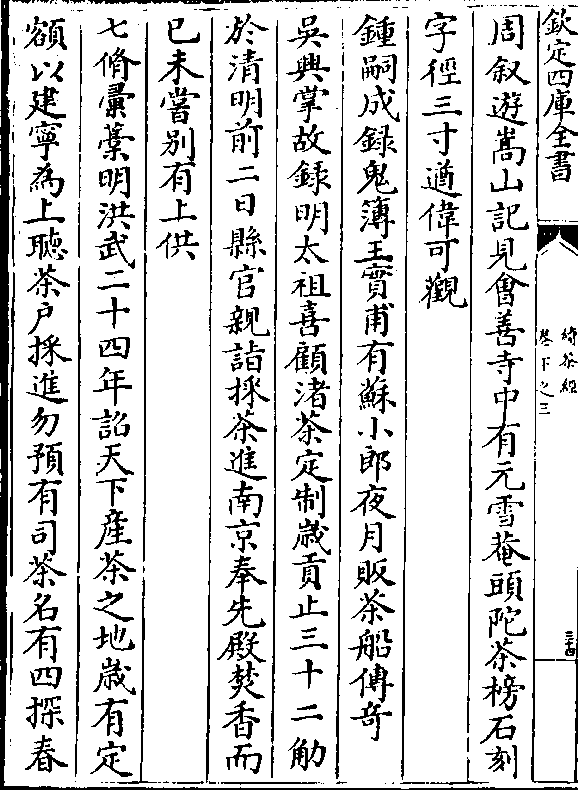 欽定四庫全書
續茶經
卷下之三
三十四
周叙遊嵩山記見會善寺中有元雪菴頭陀茶榜石刻
字徑三寸遒偉可觀
鍾嗣成録鬼簿王實甫有蘇小郎夜月販茶船傳奇
吳興掌故錄明太祖喜顧渚茶定制歲貢止三十二觔
於清明前二日縣官親詣採茶進南京奉先殿焚香而
已未嘗别有上供
七脩彚藁明洪武二十四年詔天下産茶之地歲有定
額以建寧為上聽茶户採進勿預有司茶名有四探春